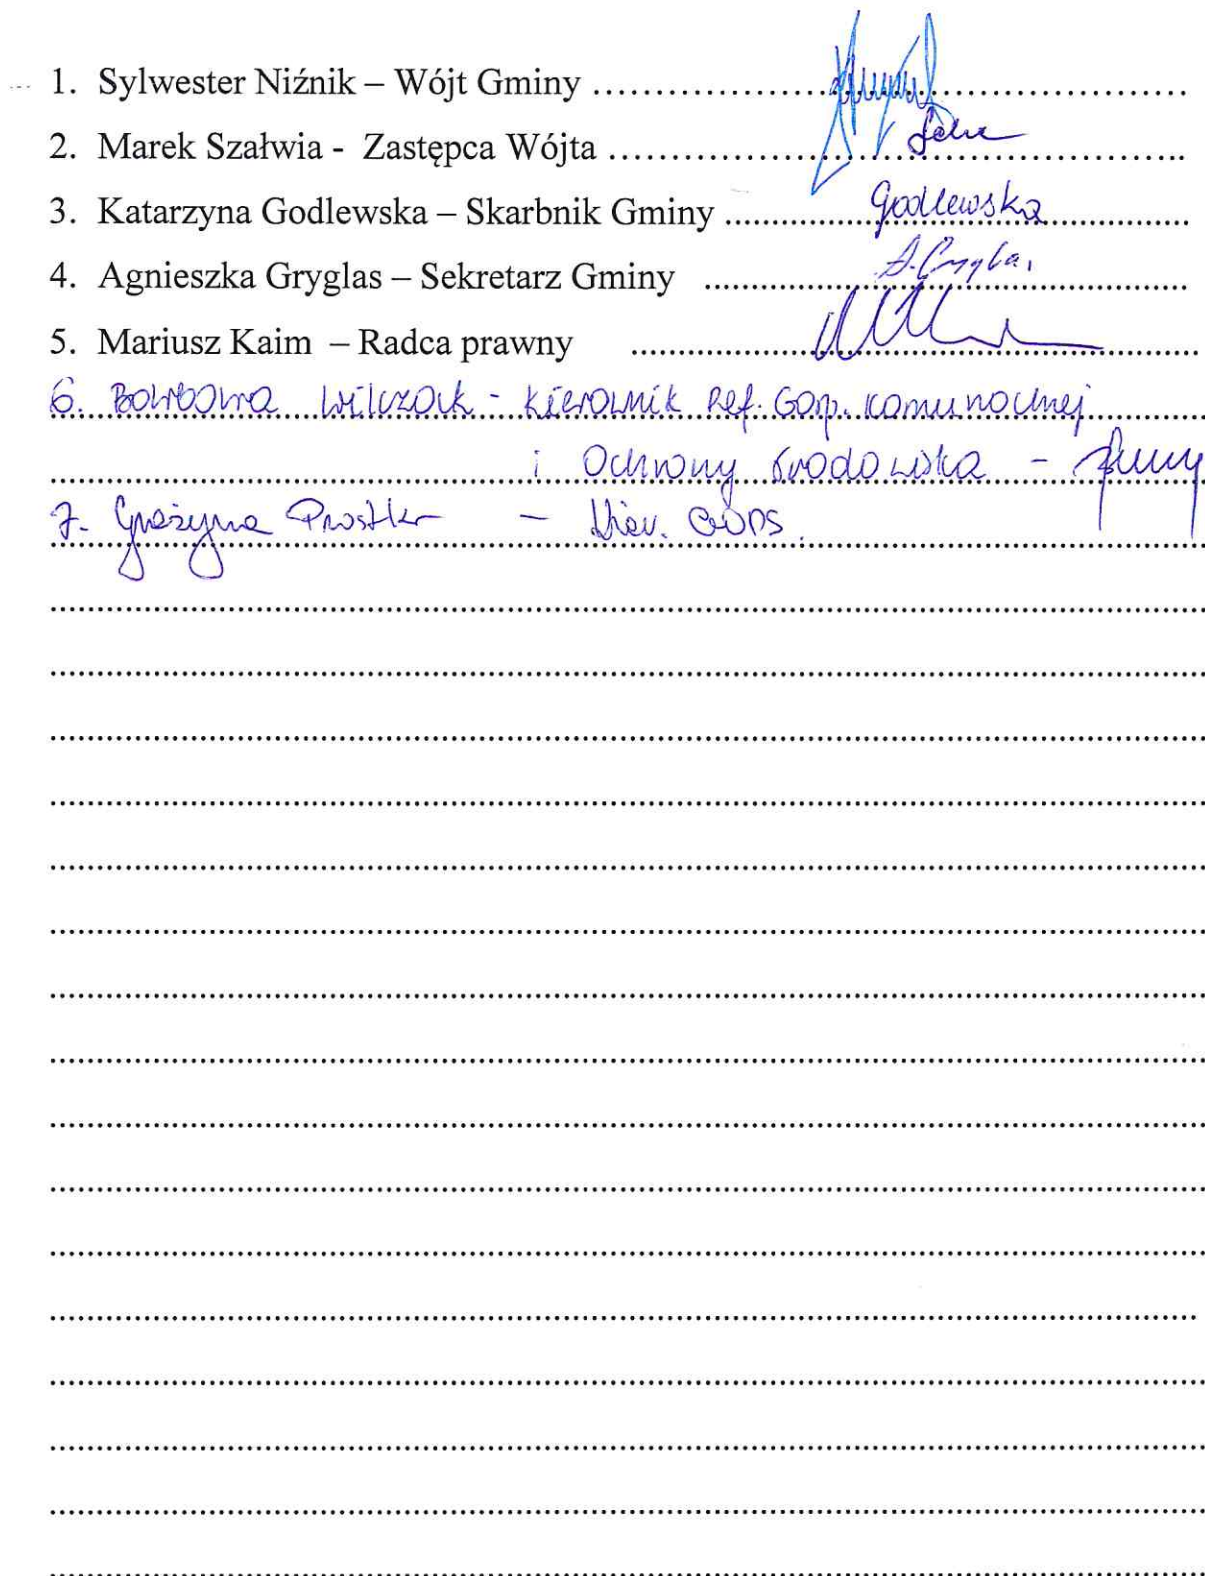 1. Sylwester Niźnik – Wójt Gminy ........................................................
2. Marek Szałwia - Zastępca Wójta ........................................................
3. Katarzyna Godlewska – Skarbnik Gminy ............. Godlewska ...............
4. Agnieszka Gryglas – Sekretarz Gminy .............. A. Gryglas ...............
5. Mariusz Kaim – Radca prawny ........................................................
6. Barbara Wilczak - Kierownik Ref. Gosp. Komunalnej
i Ochrony Środowiska -
7. Grażyna - Kier. GOPS.